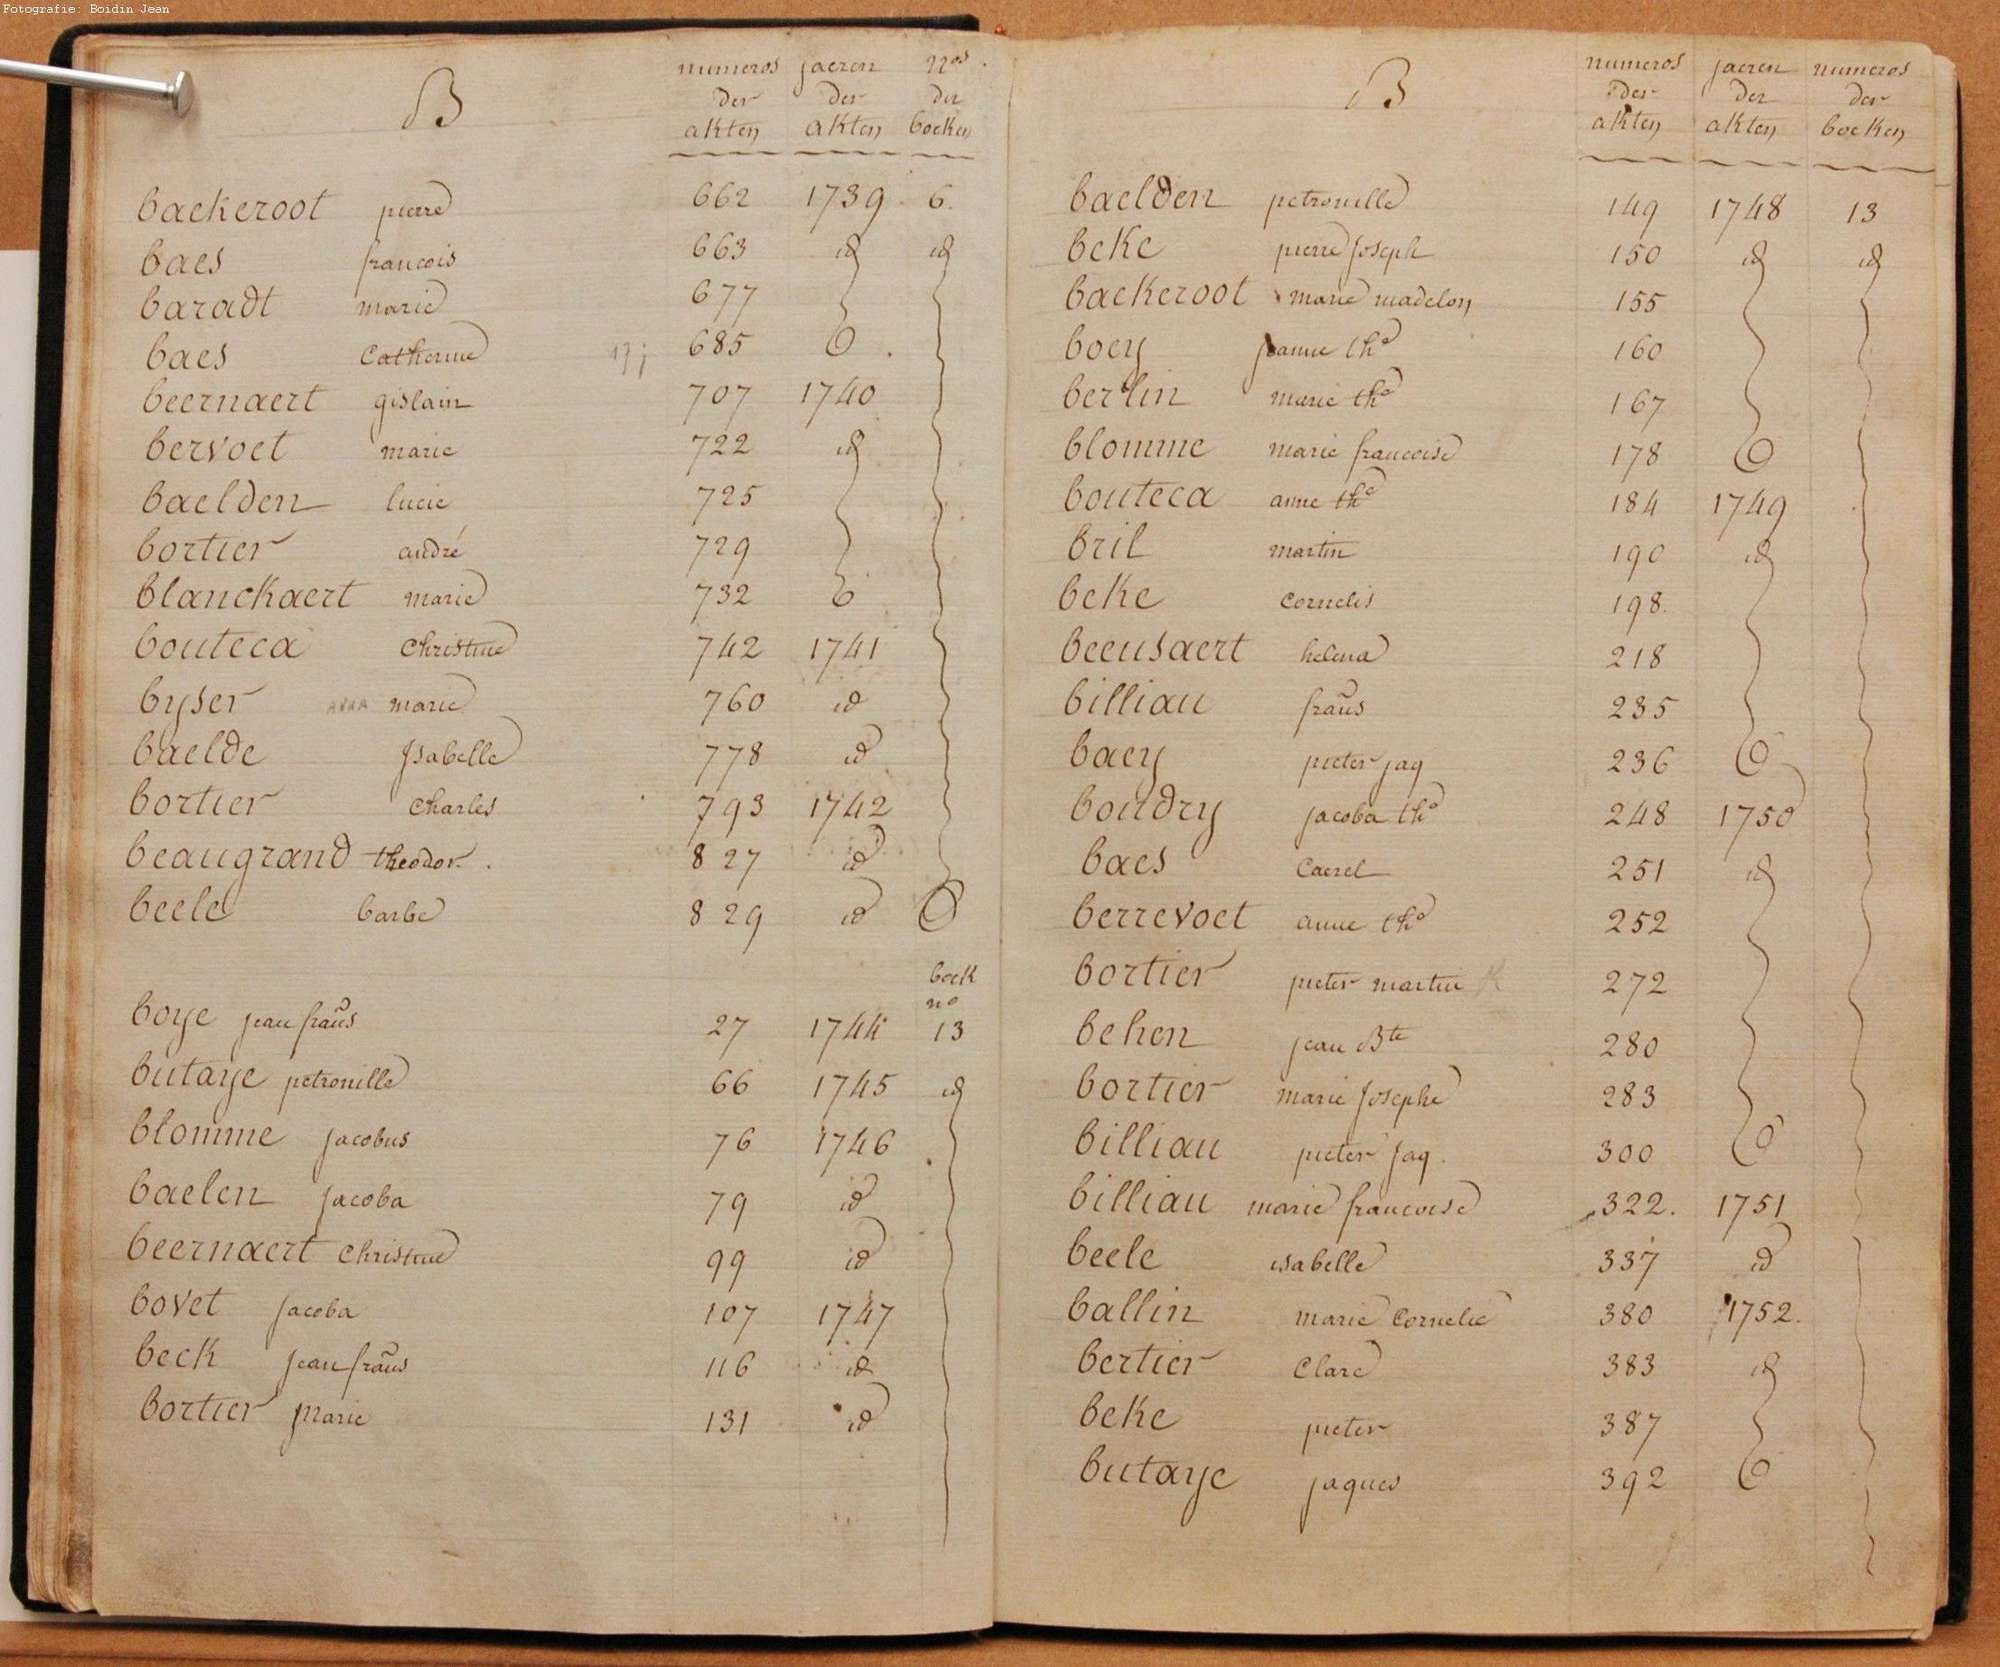 Fotografie: Boidin Jean
B
numeros der akten
jaeren der akten
nos. der boeken
backeroot pierre 662 1739 6.
baes francois 663 id id
baradt marie 677
baes Catherine 17 j 685
beernaert gislain 707 1740
bervoet marie 722 id
baelden lucie 725
bortier andré 729
blanckaert marie 732
bouteca Christine 742 1741
byser anna marie 760 id
baelde Isabelle 778 id
bortier Charles 793 1742
beaugrand theodor. 827 id
beele barbe 829 id
boek no
boye jean fraũs 27 1744 13
butaye petronille 66 1745 id
blomme jacobus 76 1746
baelen jacoba 79 id
beernaert Christine 99 id
bovet jacoba 107 1747
beck jean fraũs 116 id
bortier marie 131 id
B
numeros der akten
jaeren der akten
numeros der boeken
baelden petronille 149 1748 13
beke pierre Joseph 150 id id
backeroot marie madelon 155
boey joanne the 160
berlin marie the 167
blomme marie francoise 178
bouteca anne the 184 1749
bril martin 190 id
beke Cornelis 198.
beeusaert helena 218
billiau fraũs 235
baey pieter jaq 236
boudry jacoba the 248 1750
baes Caerel 251 id
berrevoet anne the 252
bortier pieter martin 272
behen jean Bte 280
bortier marie Josephe 283
billiau pieter Jaq. 300
billiau marie francoise 322. 1751
beele isabelle 337 id
ballin marie Cornelie 380 1752.
bertier Clare 383 id
beke pieter 387
butaye jaques 392